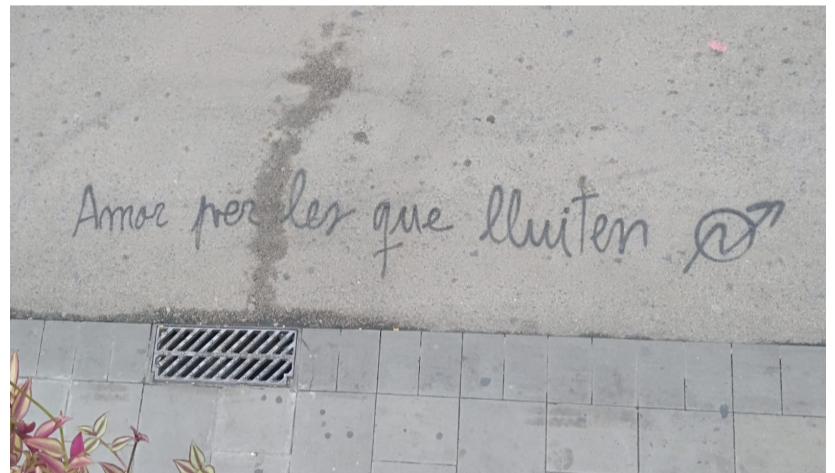 Amor per les que lluiten